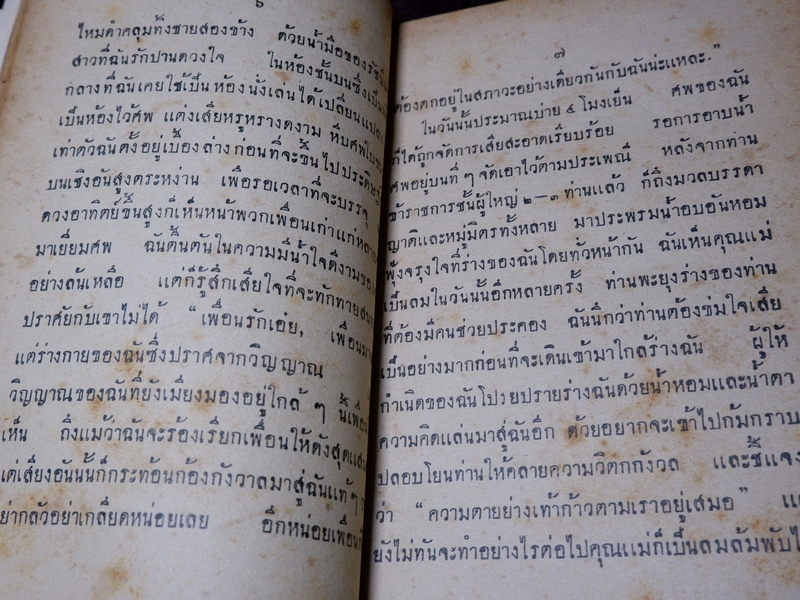 ๖
ไหมดำคลุมทิ้งชายสองข้าง ด้วยน้ำมือของ
สาวที่ฉันรักปานดวงใจ ในห้องชั้นบนซึ่งเป็น
กลางที่ฉันเคยใช้เป็นห้องนั่งเล่นได้เปลี่ยนแปลง
เป็นห้องไว้ศพ แต่งเสียหรูหรางดงาม หีบศพใบ
เท่าตัวฉันตั้งอยู่เบื้องล่างก่อนที่จะขึ้นไปประดิษฐ
บนเชิงอันสูงตระหง่าน เพื่อรอเวลาที่จะบรรจุ
ดวงอาทิตย์ขึ้นสูงก็เห็นหน้าพวกเพื่อนเก่าแก่หลาย
มาเยี่ยมศพ ฉันตื้นตันในความมีน้ำใจดีงามของ
อย่างล้นเหลือ แต่ก็รู้สึกเสียใจที่จะทักทาย
ปราศัยกับเขาไม่ได้ “เพื่อนรักเอ๋ย, เพื่อนมา
แต่ร่างกายของฉันซึ่งปราศจากวิญญาณ
วิญญาณของฉันที่ยังเมียงมองอยู่ใกล้ ๆ นี้เพื่อน
เห็น ถึงแม้ว่าฉันจะร้องเรียกเพื่อนให้ดังสุดแสน
แต่เสียงอันนั้นก็กระท้อนก้องกังวาลมาสู่ฉันแท้ๆ
ย่ากลัวอย่าเกลียดหน่อยเลย อีกหน่อยเพื่อนก็
๗
ต้องตกอยู่ในสภาวะอย่างเดียวกันกับฉันน่ะแหละ.”
ในวันนั้นประมาณบ่าย ๔ โมงเย็น ศพของฉัน
ก็ได้ถูกจัดการเสียสะอาดเรียบร้อย รอการอาบน้ำ
ศพอยู่บนที่ ๆ จัดเอาไว้ตามประเพณี หลังจากท่าน
ข้าราชการชั้นผู้ใหญ่ ๒—๓ ท่านแล้ว ก็ถึงมวลบรรดา
ญาติและหมู่มิตรทั้งหลาย มาประพรมน้ำอบอันหอม
ฟุ้งจรุงใจที่ร่างของฉันโดยทั่วหน้ากัน ฉันเห็นคุณแม่
เป็นลมในวันนั้นอีกหลายครั้ง ท่านพะยุงร่างของท่าน
ที่ต้องมีคนช่วยประคอง ฉันนึกว่าท่านต้องข่มใจเสีย
เป็นอย่างมากก่อนที่จะเดินเข้ามาใกล้ร่างฉัน ผู้ให้
กำเนิดของฉันโปรยปรายร่างฉันด้วยน้ำหอมและน้ำตา
ความคิดแล่นมาสู่ฉันอีก ด้วยอยากจะเข้าไปก้มกราบ
ปลอบโยนท่านให้คลายความวิตกกังวล และชี้แจง
ว่า “ความตายย่างเท้าก้าวตามเราอยู่เสมอ”
ยังไม่ทันจะทำอย่างไรต่อไปคุณแม่ก็เป็นลมล้มพับไ